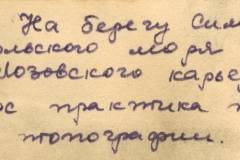 На берегу Сим
ольского моря
Лозовского карье
ос практика п
топографии.